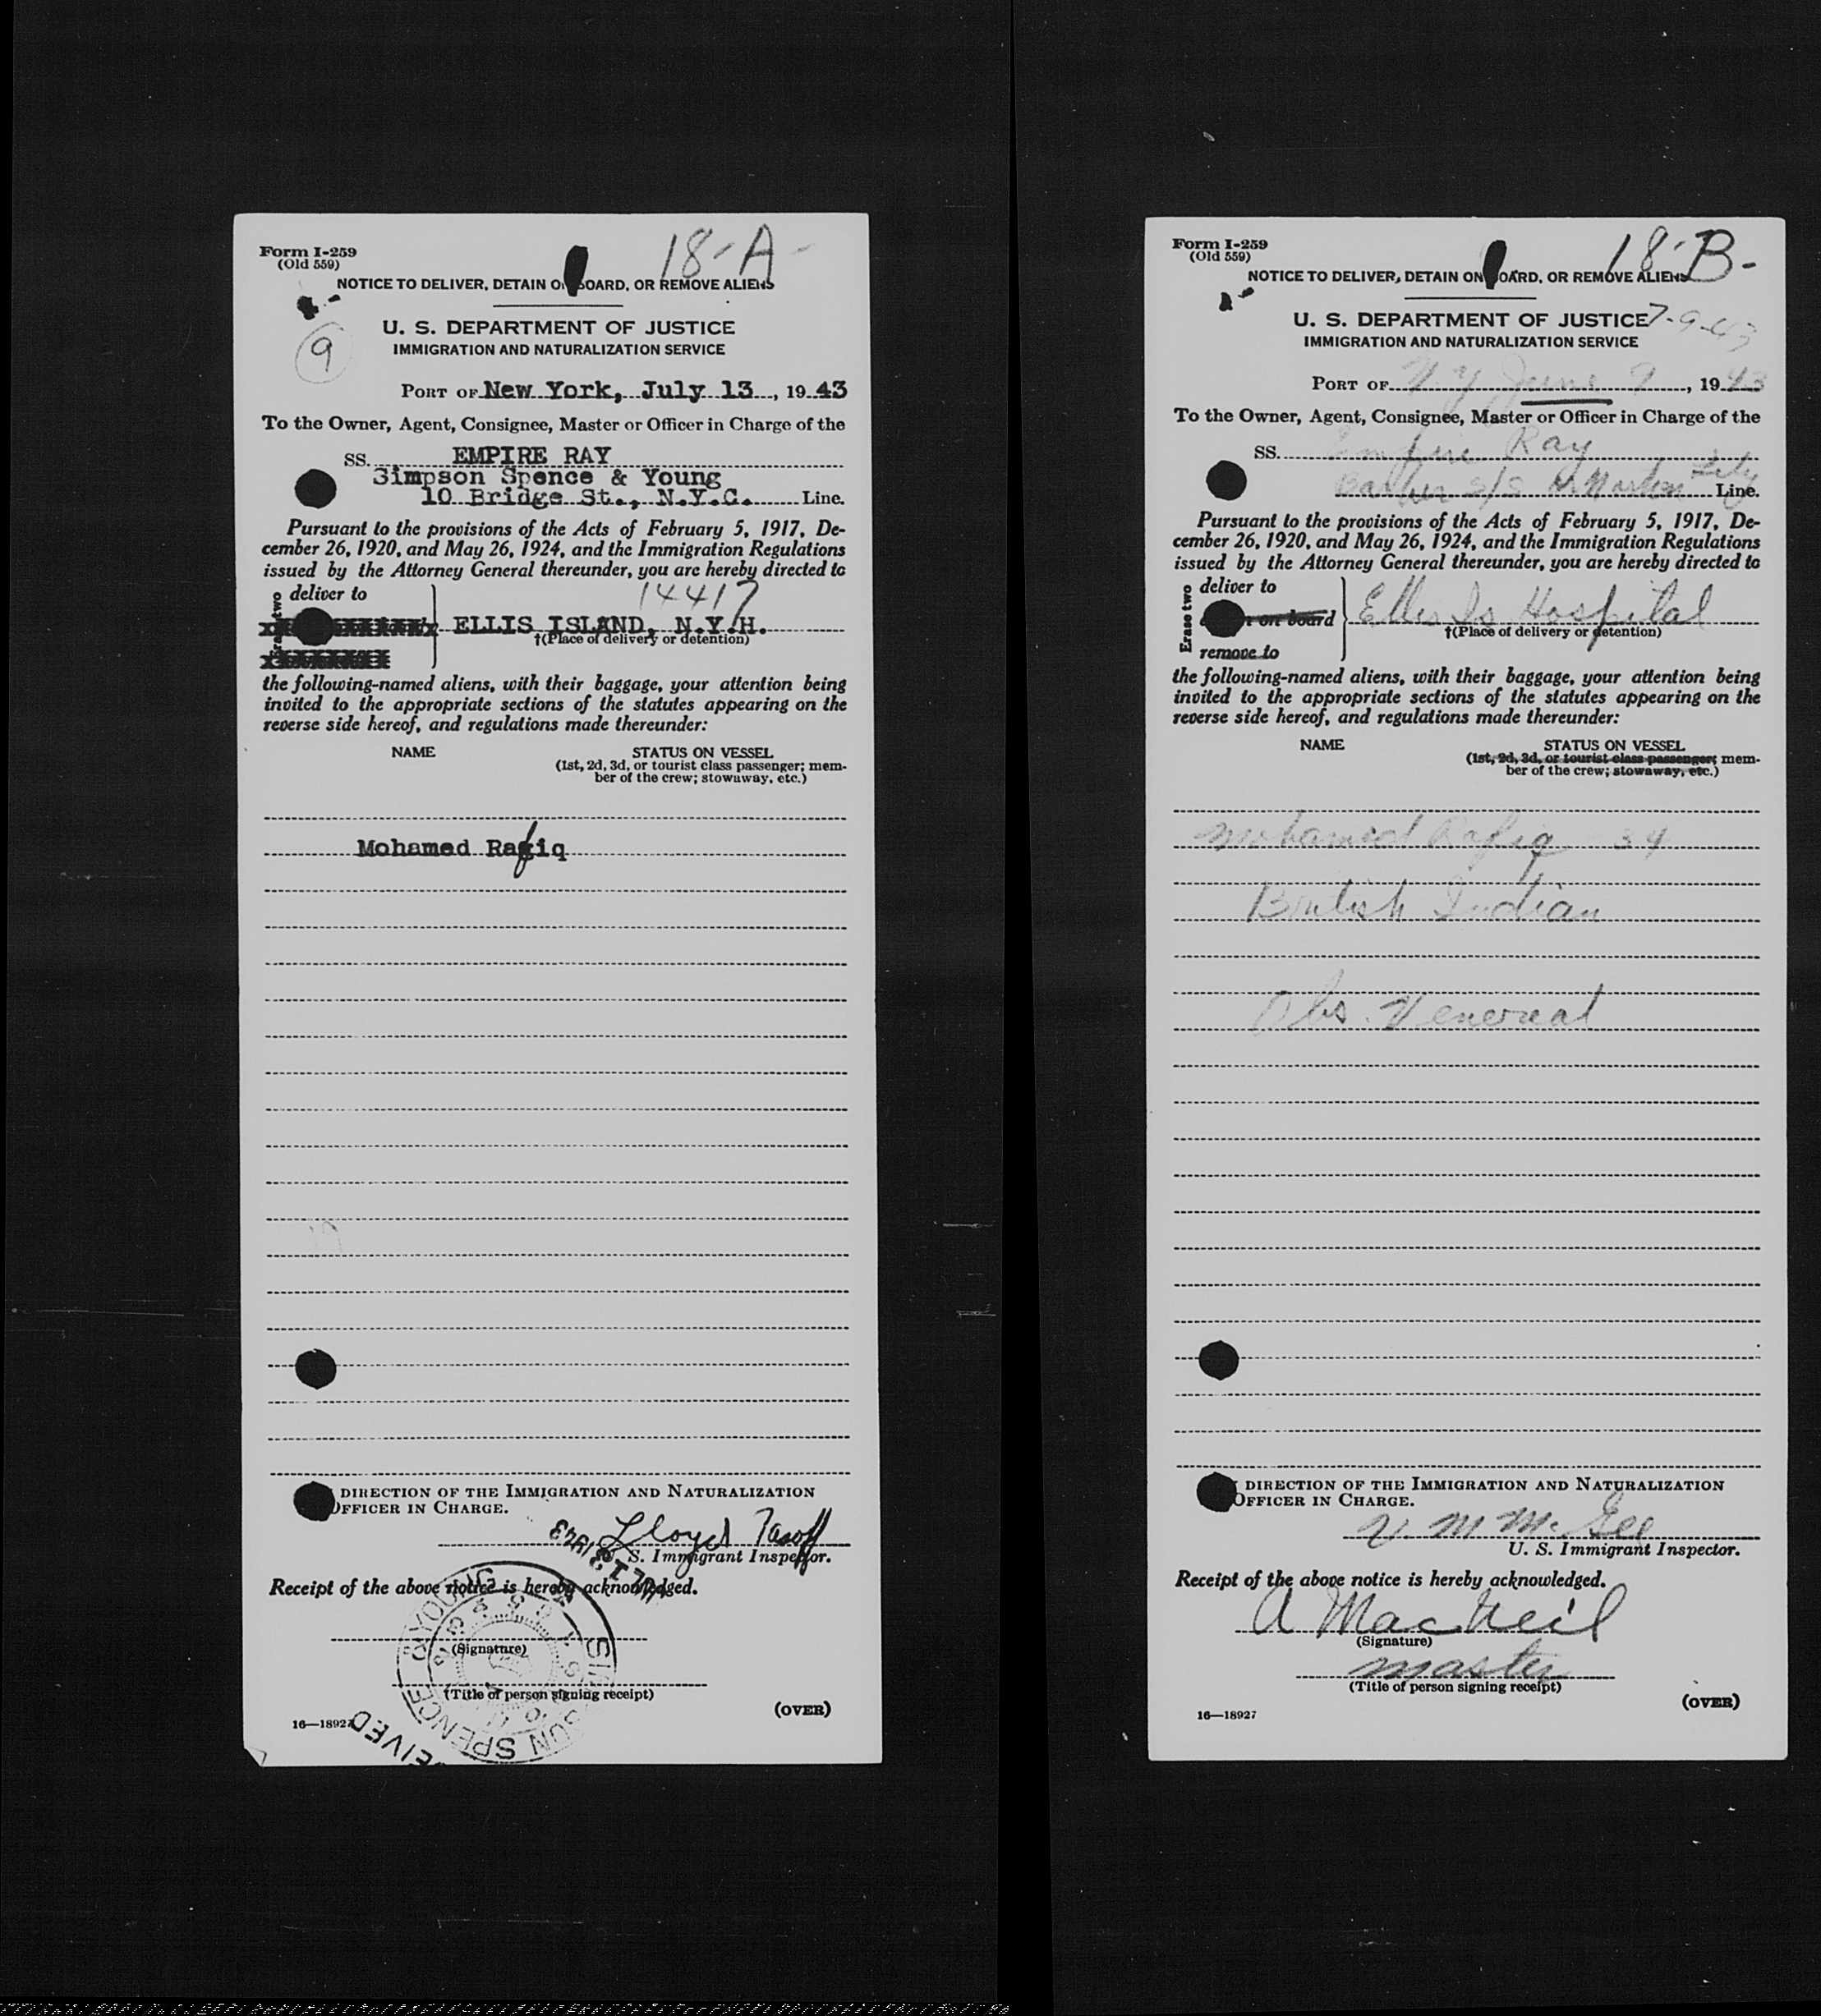 Form I-259
(Old 559)
18-A-
NOTICE TO DELIVER, DETAIN ON BOARD, OR REMOVE ALIENS
9
U. S. DEPARTMENT OF JUSTICE
IMMIGRATION AND NATURALIZATION SERVICE
PORT OF New York, July 13, 1943
To the Owner, Agent, Consignee, Master or Officer in Charge of the
SS. EMPIRE RAY
Simpson Spence & Young
10 Bridge St., N.Y.C. Line.
Pursuant to the provisions of the Acts of February 5, 1917, De-
cember 26, 1920, and May 26, 1924, and the Immigration Regulations
issued by the Attorney General thereunder, you are hereby directed to
deliver to
14417
ELLIS ISLAND, N.Y.H.
†(Place of delivery or detention)
the following-named aliens, with their baggage, your attention being
invited to the appropriate sections of the statutes appearing on the
reverse side hereof, and regulations made thereunder:
NAME STATUS ON VESSEL
(1st, 2d, 3d, or tourist class passenger; mem-
ber of the crew; stowaway, etc.)
Mohamed Rafiq
DIRECTION OF THE IMMIGRATION AND NATURALIZATION
OFFICER IN CHARGE.
Lloyd
JUL 13 1943
S. Immigrant Inspector.
Receipt of the above notice is hereby acknowledged.
(Signature)
(Title of person signing receipt)
SIMPSON SPENCE & YOUNG
(OVER)
16—18927
Form I-259
(Old 559)
18-B-
NOTICE TO DELIVER, DETAIN ON BOARD, OR REMOVE ALIENS
U. S. DEPARTMENT OF JUSTICE
7-9-43
IMMIGRATION AND NATURALIZATION SERVICE
PORT OF N Y June 9, 1943
To the Owner, Agent, Consignee, Master or Officer in Charge of the
SS. Empire Ray
Barber S/S Line.
Pursuant to the provisions of the Acts of February 5, 1917, De-
cember 26, 1920, and May 26, 1924, and the Immigration Regulations
issued by the Attorney General thereunder, you are hereby directed to
Erase two
deliver to
on board
Ellis Is Hospital
†(Place of delivery or detention)
remove to
the following-named aliens, with their baggage, your attention being
invited to the appropriate sections of the statutes appearing on the
reverse side hereof, and regulations made thereunder:
NAME STATUS ON VESSEL
(1st, 2d, 3d, or tourist class passenger; mem-
ber of the crew; stowaway, etc.)
Mohamed Rafiq 34
British Indian
Obs. Venereal
DIRECTION OF THE IMMIGRATION AND NATURALIZATION
OFFICER IN CHARGE.
V M McGee
U. S. Immigrant Inspector.
Receipt of the above notice is hereby acknowledged.
A MacNeil
(Signature)
master
(Title of person signing receipt)
(OVER)
16—18927